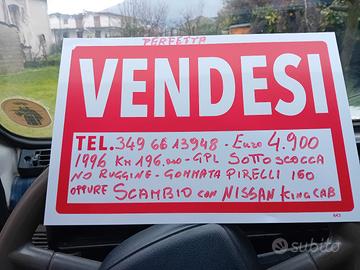 PERFETTA
VENDESI
TEL. 349 66 13948 - Euro 4.900
1996 Km 196.000 - GPL SOTTO SCOCCA
NO RUGGINE - GOMMATA PIRELLI 160
OPPURE SCAMBIO CON NISSAN KING CAB
subito